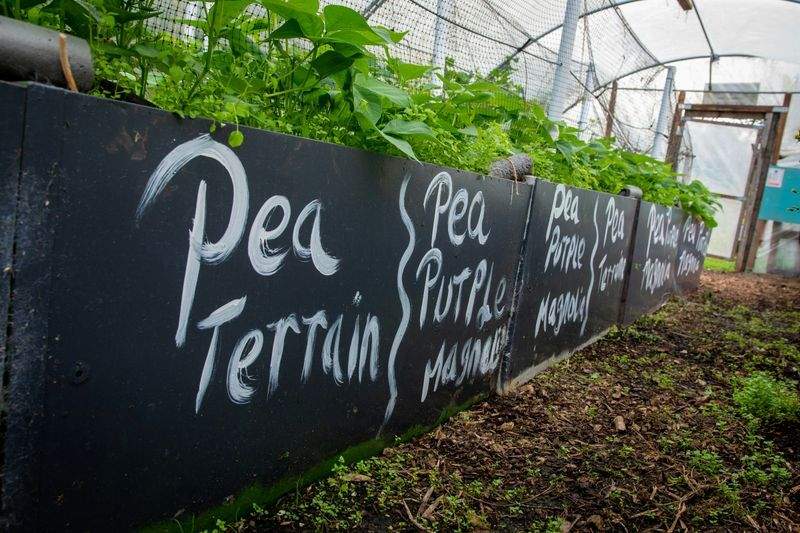 Pea
Terrain
Pea
Purple
Magnolia
Pea
Purple
Magnolia
Pea
Terrain
Pea
Magnolia
Pea